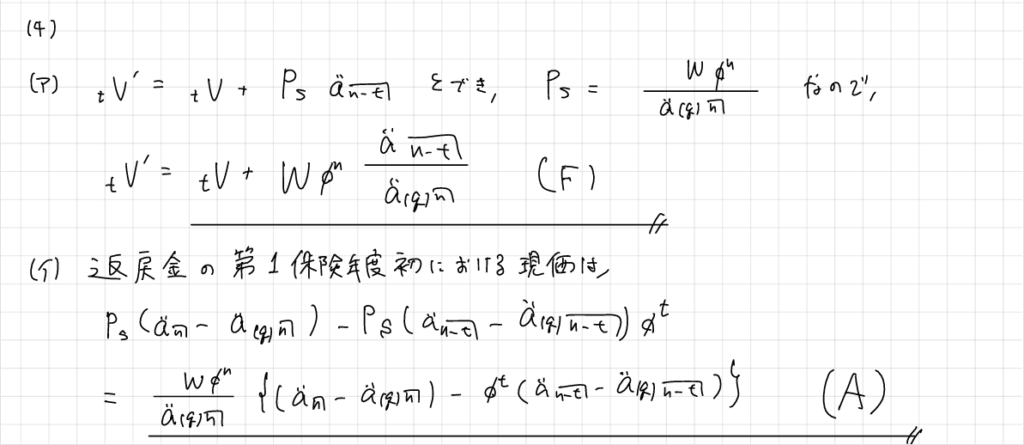 (4)
(ア) ₜV' = ₜV + Pₛ ä_{n-t|} とでき, Pₛ = Wφⁿ / ä_{(q)n|} なので,
ₜV' = ₜV + Wφⁿ ä_{n-t|} / ä_{(q)n|} (F)
(イ) 返戻金の第1保険年度初における現価は,
Pₛ(ä_{n|} - ä_{(q)n|}) - Pₛ(ä_{n-t|} - ä_{(q)n-t|})φᵗ
= Wφⁿ / ä_{(q)n|} {(ä_{n|} - ä_{(q)n|}) - φᵗ(ä_{n-t|} - ä_{(q)n-t|})} (A)